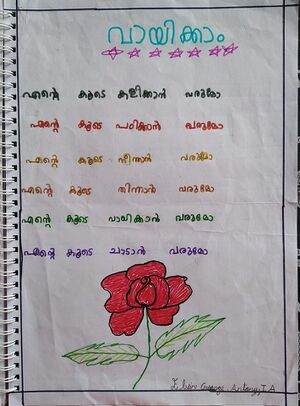 വായിക്കാം
എന്റെ കൂടെ കളിക്കാൻ വരുമോ
എന്റെ കൂടെ പഠിക്കാൻ വരുമോ
എന്റെ കൂടെ നീന്താൻ വരുമോ
എന്റെ കൂടെ തിന്നാൻ വരുമോ
എന്റെ കൂടെ വായിക്കാൻ വരുമോ
എന്റെ കൂടെ ചാടാൻ വരുമോ
Antony.T.A